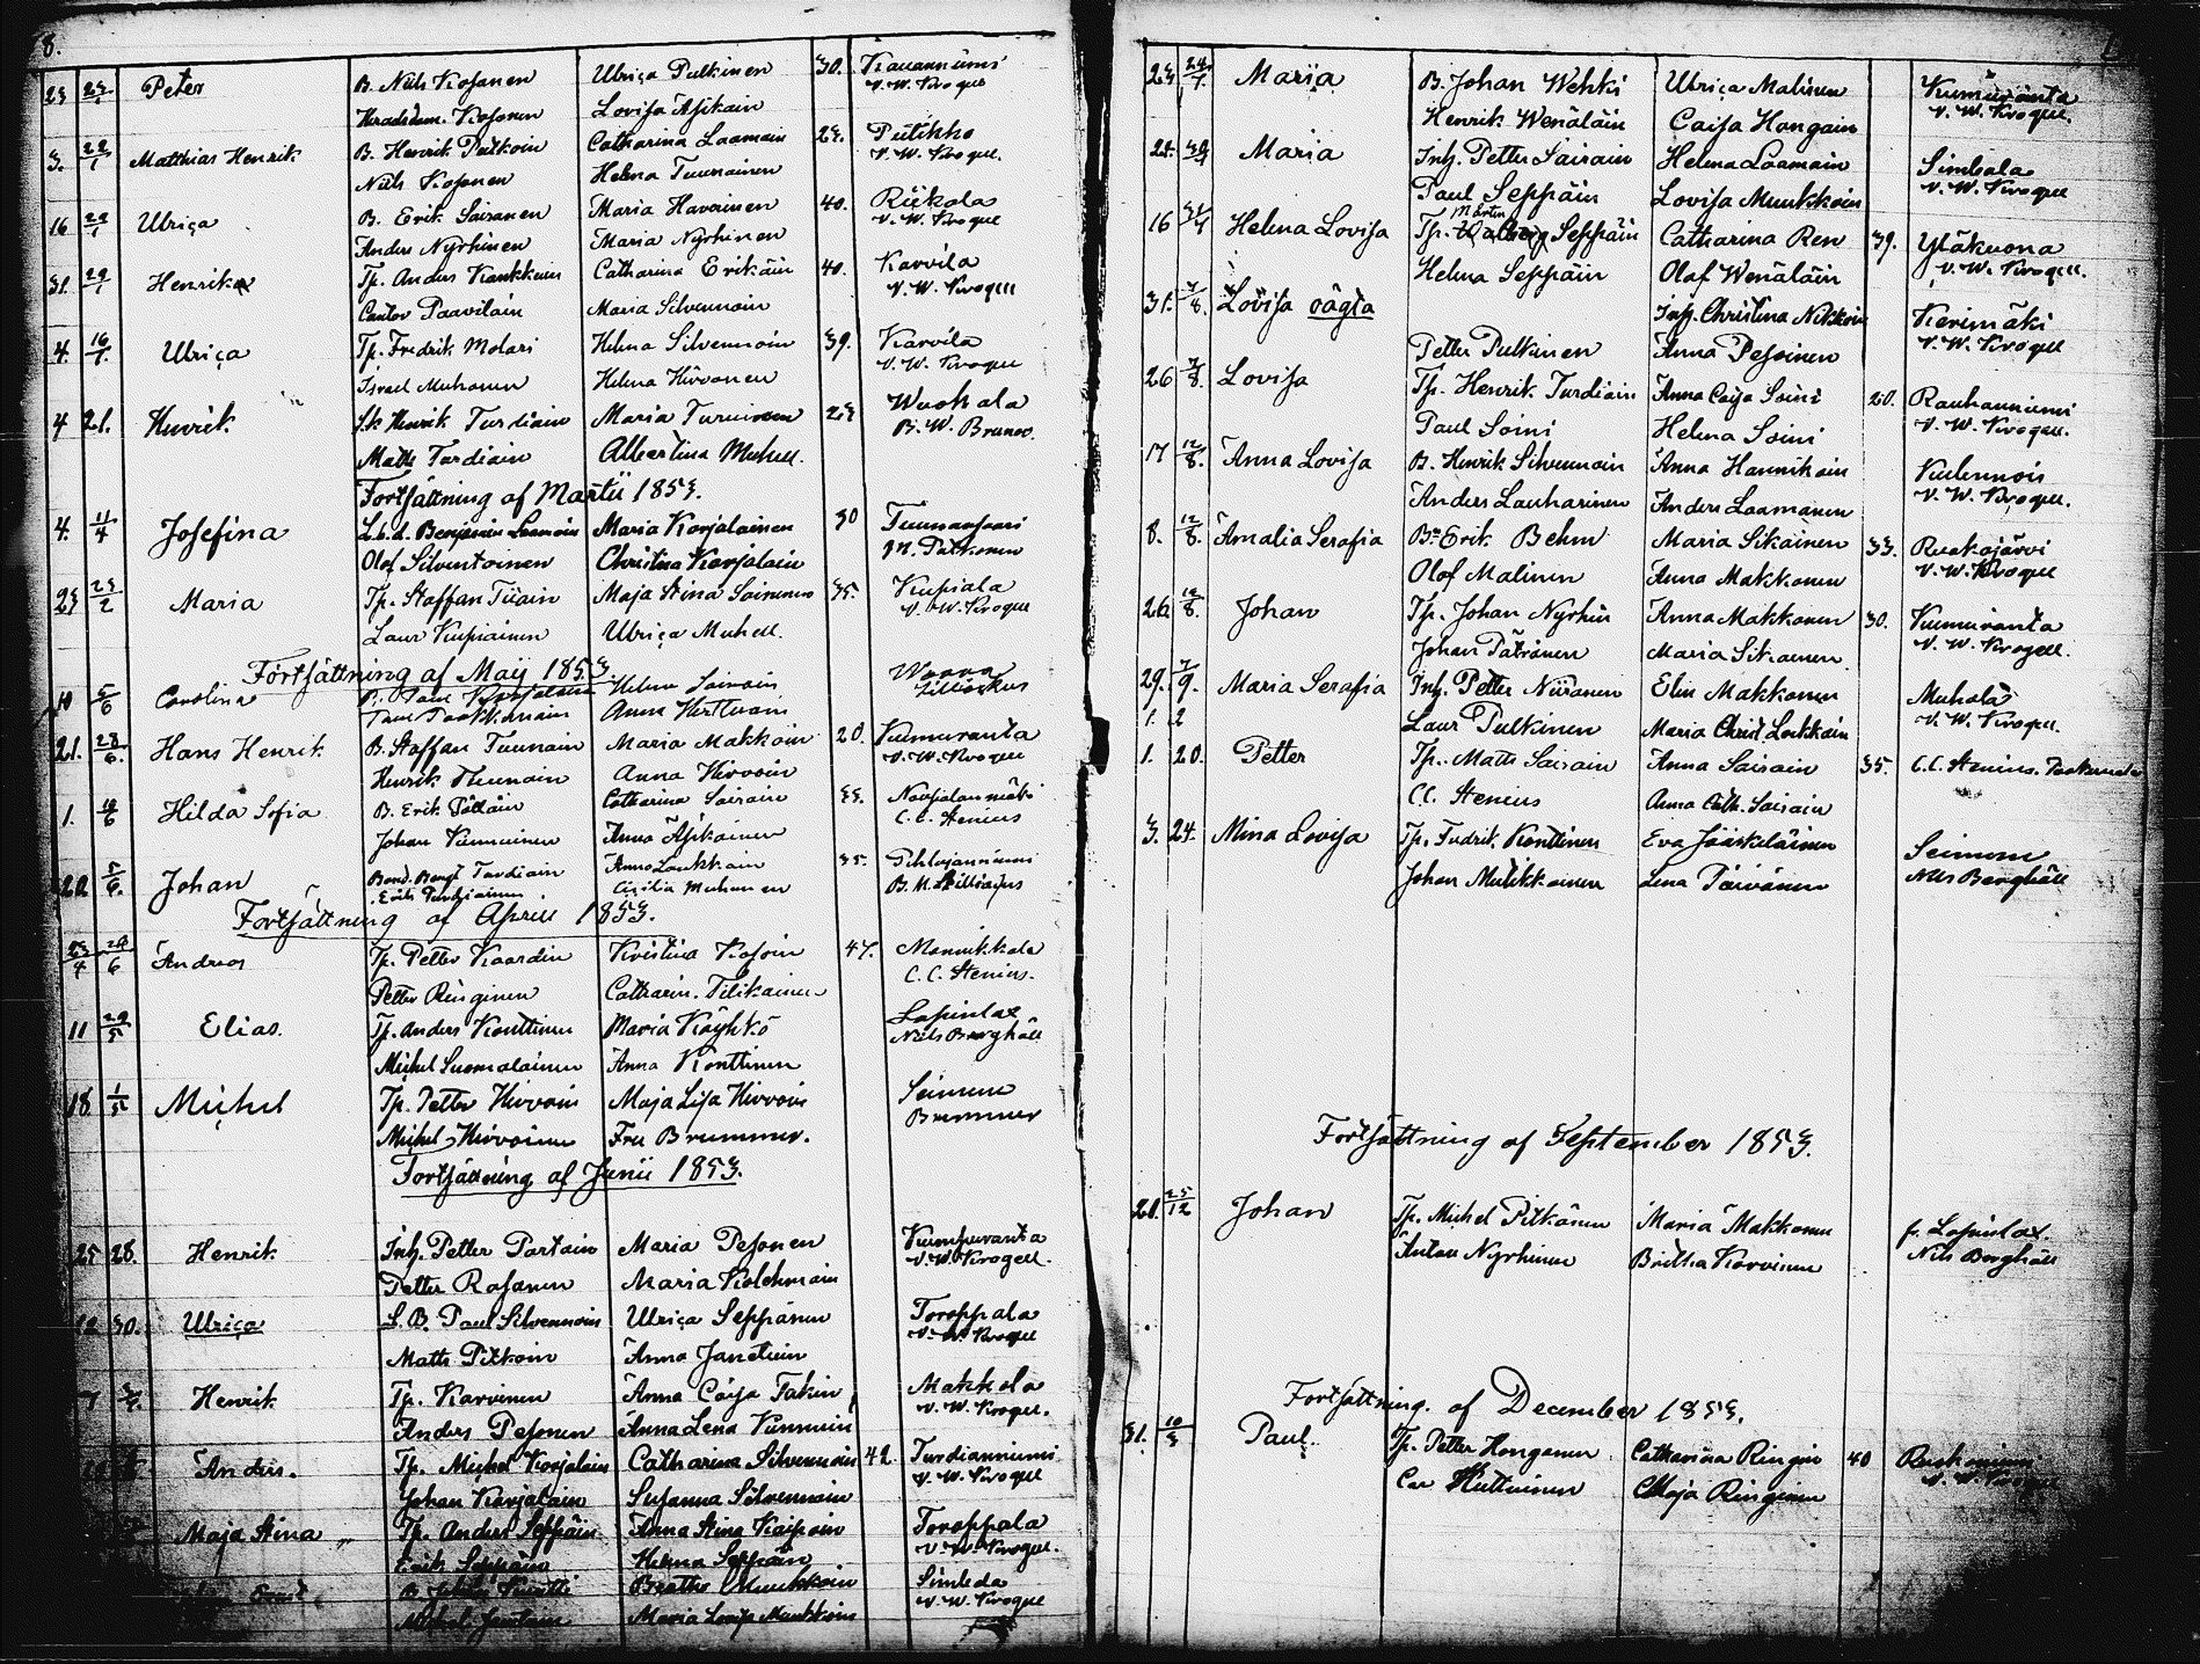 8.
23 23/1 Peter B. Nils Kosonen Ulriça Pulkinen 30. Rauanniemi
V. W. Krogell
Kosonen Lovisa Asikain
3. 22/1 Matthias Henrik B. Henrik Putkoin Catharina Laamain 23. Putikko
V. W. Krogell.
Nils Kosonen Helena Tuunainen
16 29/1 Ulriça B. Erik Sairanen Maria Haverinen 40. Riikola
V. W. Krogell
Anders Nyrhinen Maria Nyrhinen
31. 29/1 Henrika Tp. Anders Kankkuin Catharina Erikäin 40. Karvila
V. W. Krogell
Cantor Paavilain Maria Silvennoin
4. 16/1 Ulriça Tp. Fredrik Molari Helena Silvennoin 39. Karvila
V. W. Krogell
Israel Muhonen Helena Hirvonen
4 21. Henrik Henrik Turdiain Maria Turuinen 23 Wuokala
B. W. Brunow.
Matts Turdiain Albertina Muhell.
Fortsättning af Martii 1853.
4. 11/4 Josefina L.b.d. Benjamin Laamain Maria Karjalainen 30 Tuunansaari
M. Putkonen
Olof Silventoinen Christina Karjalain
23 23/2 Maria Tp. Staffan Tiiain Maja Stina Sairanen 35. Kupiala
V. W. Krogell
Laur Kupiainen Ulriça Muhell.
Fortsättning af Maij 1853
10 5/6 Carolina Paul Karjalain Helena Sairain Woara
Lilliackus
Paakkunain Anna Herttuain
21. 28/6. Hans Henrik B. Staffan Tuunain Maria Makkoin 20. Kumuranta
V. W. Krogell
Henrik Tuunain Anna Hirvoin
1. 19/6 Hilda Sofia B. Erik Pölläin Catharina Sairain 33. Naupalanmäki
C. C. Stenius
Johan Kinnuinen Anna Asikainen
20. 5/6. Johan Bond. Bengt Turdiain Anna Laukkain 35. Pihlajaniemi
B. M. Lilliackus
Erik Turdiainen Cicilia Muhonen
Fortsättning af Aprill 1853.
23/4 29/6 Andreas Tp. Petter Kaardin Kristina Kosoin 47. Mannikkala
C. C. Stenius.
Petter Ringinen Catharin. Tilikainen
11 29/5 Elias. Tp. Anders Konttinen Maria Käyhkö Lapinlax
Nils Berghäll
Michel Suomalainen Anna Konttinen
18 1/5 Michel Tp. Petter Hirvoin Maja Lisa Hirvoin Seimen
Brummer
Michel Hirvoinen Fru Brummer.
Fortsättning af Junii 1853.
25 28. Henrik Inh. Petter Partain Maria Pesonen Kumpuranta
V. W. Krogell.
Petter Rosanen Maria Kolehmain
12 30. Ulriça S. B. Paul Silvennoin Ulriça Seppänen Toroppala
V. W. Krogell
Matts Pitkoin Anna Janetuin
7 Henrik Tp. Karvinen Anna Caija Takin Makkola
V. W. Krogell.
Anders Pesonen Anna Lena Kinnuin
Andrs. Tp. Michel Karjalain Catharina Silvennoin 42. Turdianniemi
V. W. Krogell
Johan Karjalain Susanna Silvennoin
Maja Stina Tp. Anders Seppäin Anna Stina Kaipain Toroppala
V. W. Krogell.
Erik Seppäin Helena Seppäin
Beatha Muukkoin Simbeda
V. W. Krogell
Maria Lovisa Muukkoin
23 24/7. Maria B. Johan Wehki Ulriça Malinen Kumuranta
V. W. Krogell.
Henrik Wenäläin Caisa Hongain
24. 30/7 Maria Inh. Petter Sairain Helena Laamain Simbala
V. W. Krogell
Paul Seppäin Lovisa Muukkoin
16 31/7 Helena Lovisa Tp. Martin Seppäin Catharina Ren 39. Yläkuona
V. W. Krogell.
Helena Seppäin Olof Wenäläin
31. 7/8. Lovisa oägta Inh. Christina Nikkoin Kerimäki
V. W. Krogell
Petter Pulkinen Anna Pesoinen
26 7/8. Lovisa Tp. Henrik Turdiain Anna Caija Soini 20. Rauhanniemi
V. W. Krogell.
Paul Soini Helena Soini
17 12/8. Anna Lovisa B. Henrik Silvennoin Anna Hannikain Kulennois
V. W. Krogell.
Anders Lauharinen Anders Laamanen
8. 12/8. Amalia Serafia Bn Erik Behm Maria Sikäinen 33. Ruokojärvi
V. W. Krogell
Olof Malinen Anna Makkonen
26 12/8. Johan Tp. Johan Nyrhin Anna Makkonen 30. Kumuranta
V. W. Krogell.
Johan Päivänen Maria Sikaenen
29. 7/9. Maria Serafia Inh. Petter Niiranen Elin Makkonen Muhola
V. W. Krogell.
1. 2 Laur Pulkinen Maria Christ Loikkain
1. 20. Petter Tp. Matts Sairain Anna Sairain 35. C. C. Stenius.
C. C. Stenius Anna Cath. Sairain
3. 24. Mina Lovisa Tp. Fredrik Konttinen Eva Jääskeläinen Seimen
Nils Berghäll
Johan Mulikkainen Lena Päivänen
Fortsättning af September 1853.
20. 25/12 Johan Tp. Michel Pitkänen Maria Makkonen fr. Lapinlax.
Anton Nyrhinen Britha Karvinen Nils Berghäll
Fortsättning. af December 1853.
31. 10/3 Paul. Tp. Petter Honganen Catharina Ringin 40 Ruokoniemi
V. W. Krogell
Car Huttuinen Maja Ringinen